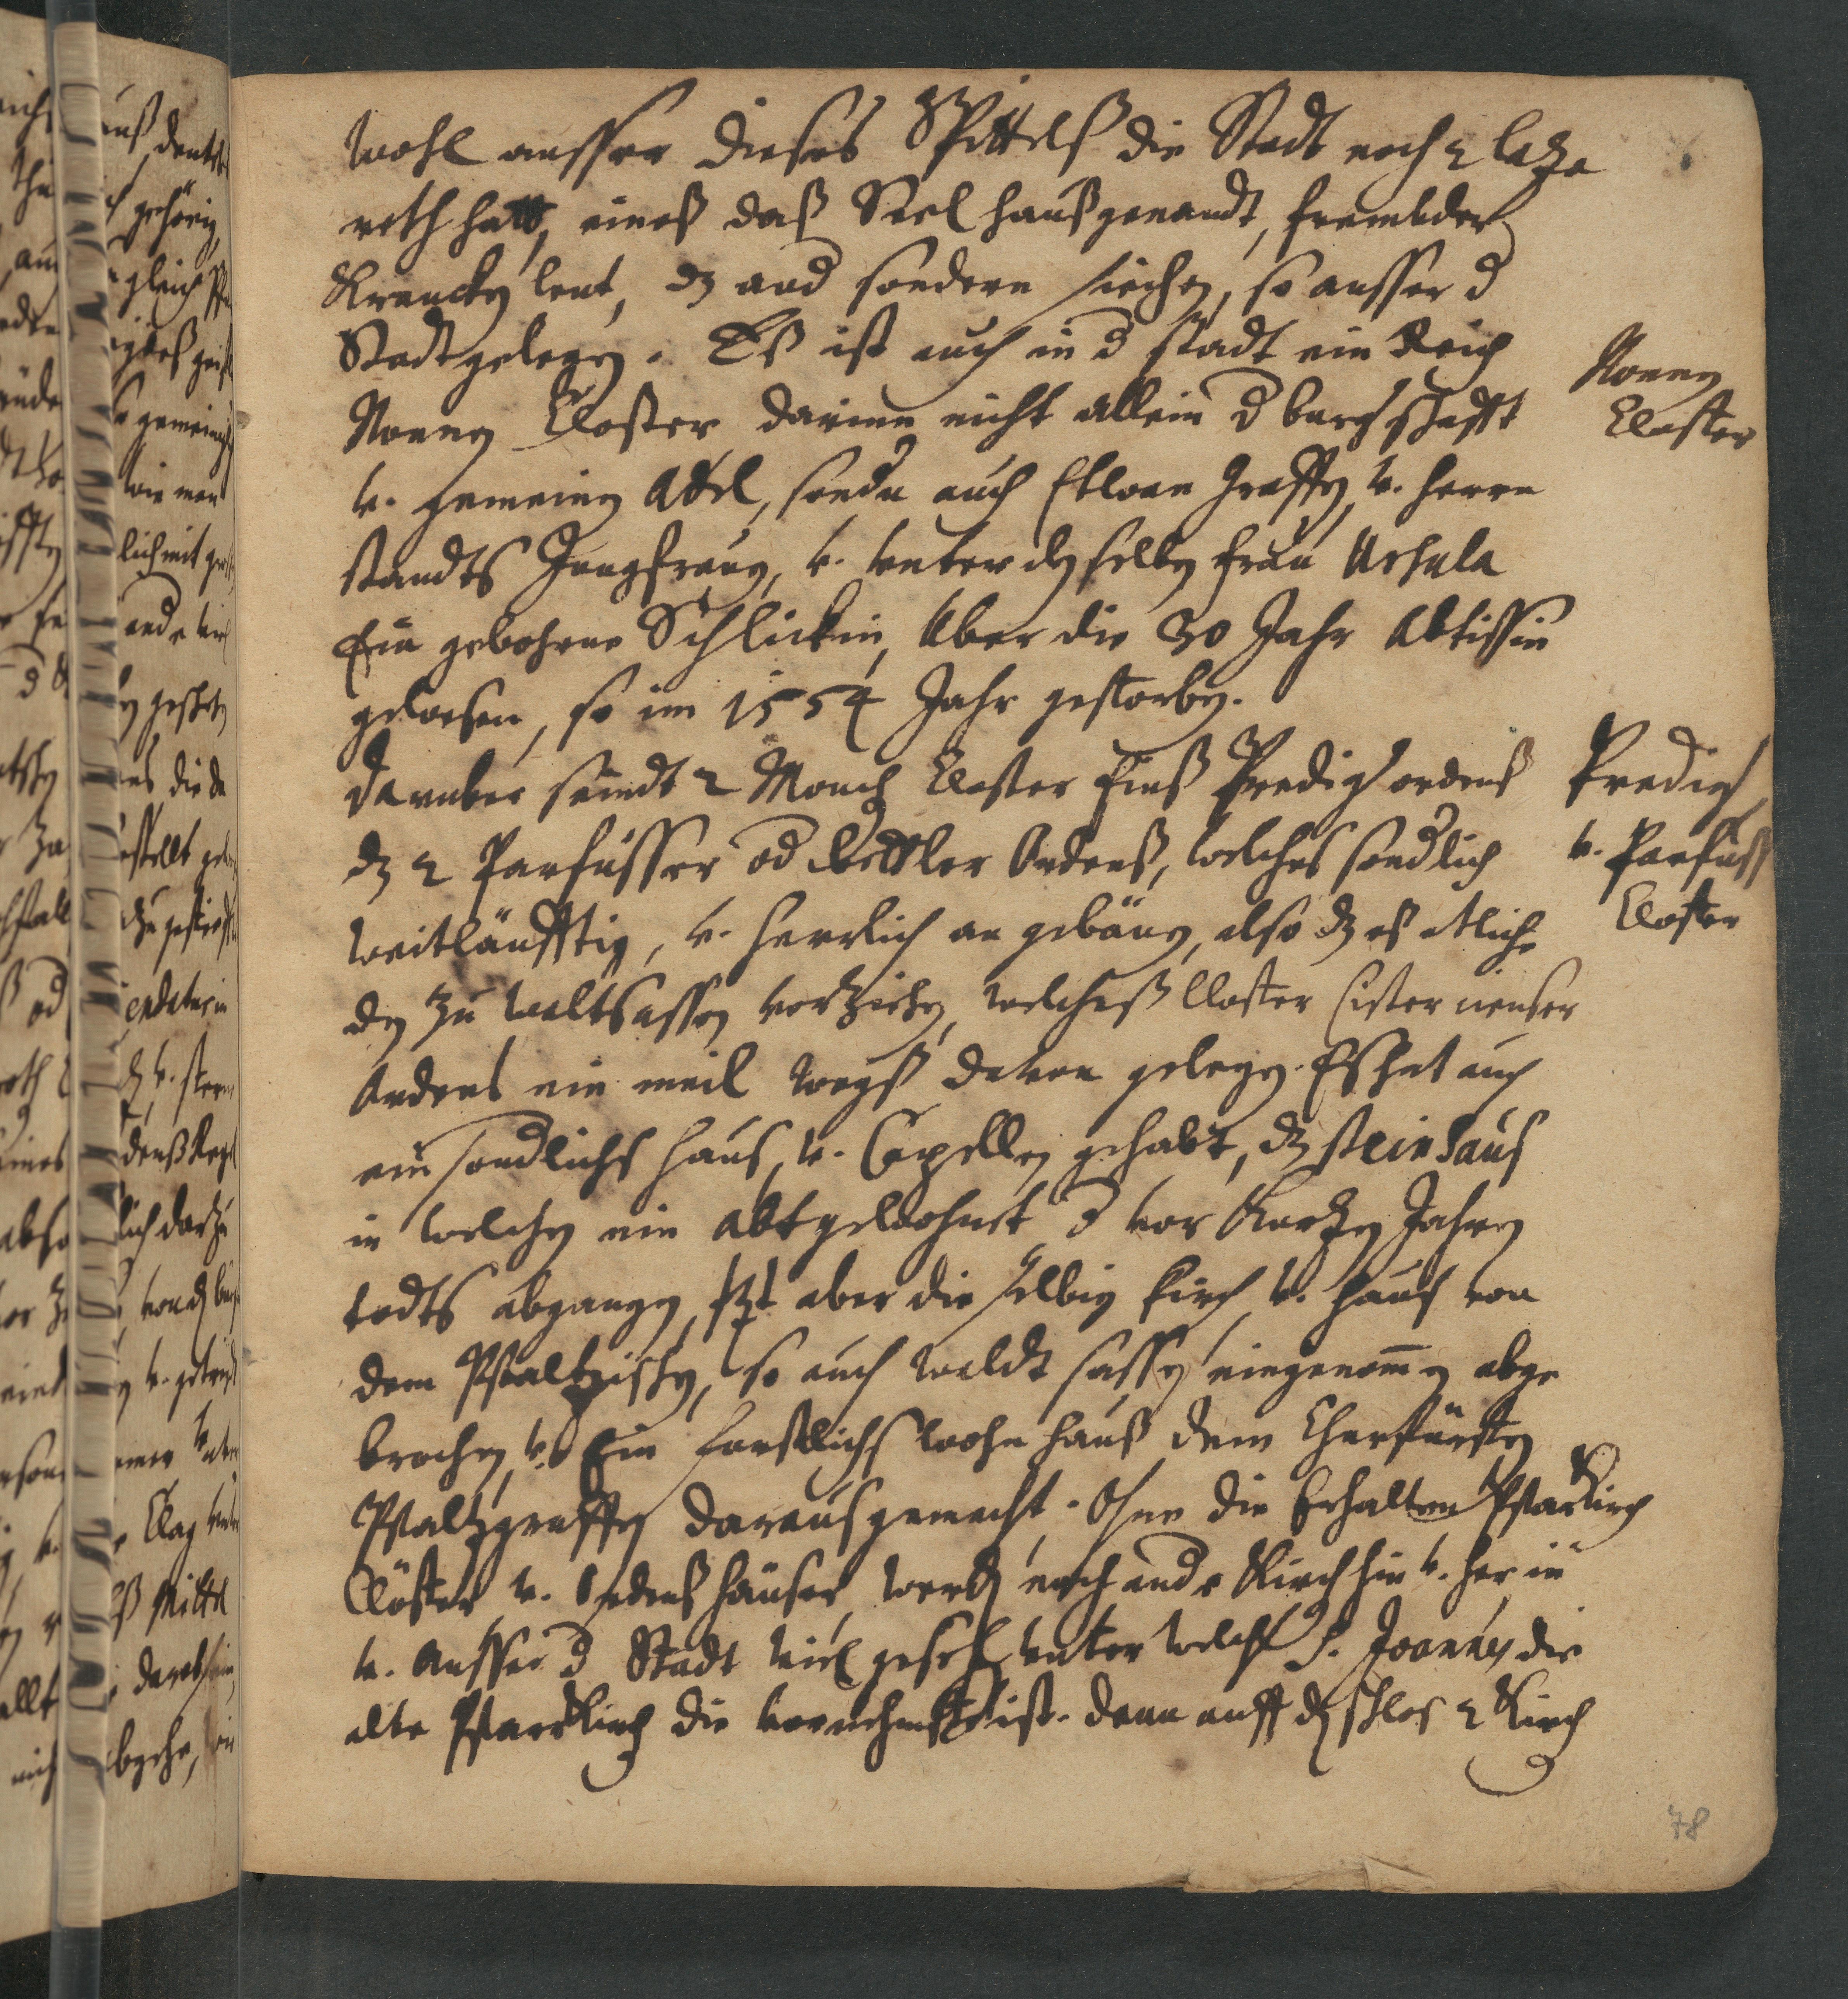 Wohl ausser dieses Spittels die Stadt noch 2 laza
reth hatt, eines daß Siel hauß genandt, frembder
Krancken leut, dz and sondern siechen, so ausser d
Stadt gelegen. Es ist auch in d stadt ein Reich
Nonnen Closter darinn nicht allein d burgschafft
v. gemeinen Adel, sondn auch Etwan Graffen v. herrn
standts Jungfrauen, v. unter denselben frau Ursula
Ein gebohrne Schlickin, Uber die 30 Jahr Abtissin
gewesen, so im 1554 Jahr gestorben.
Daruber seindt 2 Monch Closter Eins Predigr ordens
dz 2 Parfüsser od Bettler Ordens, welches sondlich
weitläufftig, v. herrlich an gebäuen, also dz es etliche
den zu Waltsassen vorziehen, welches Closter Cistercienser
Ordens ein meil wegs davon gelegen. Es hat auch
ein sondlichs haus, v. Capellen gehabt, dz steinhaus
in welchen ein Abt gewohnet d vor kurtzen Jahren
todts abgangen, jtzt aber die selbig kirch v. haus von
dem Pfaltzischen, so auch Waldt sassen eingenommen abge
brochen, v. Ein furstlichs wohn hauß dem Churfürsten
Pfaltzgraffen daraus gemacht. Ohne die Erhalten Pfarkirch
Clöster v. Ordens häuser, werden noch andr Kirch hin v. her, in
v. ausser d Stadt viel gesehen unter welchen S. Joannes die
alte Pfarrkirch die vornehmste ist. denn auff den schlos 2 Kirch
Nonnen
Closter
Predigr
v. Parfuss
Closter
78